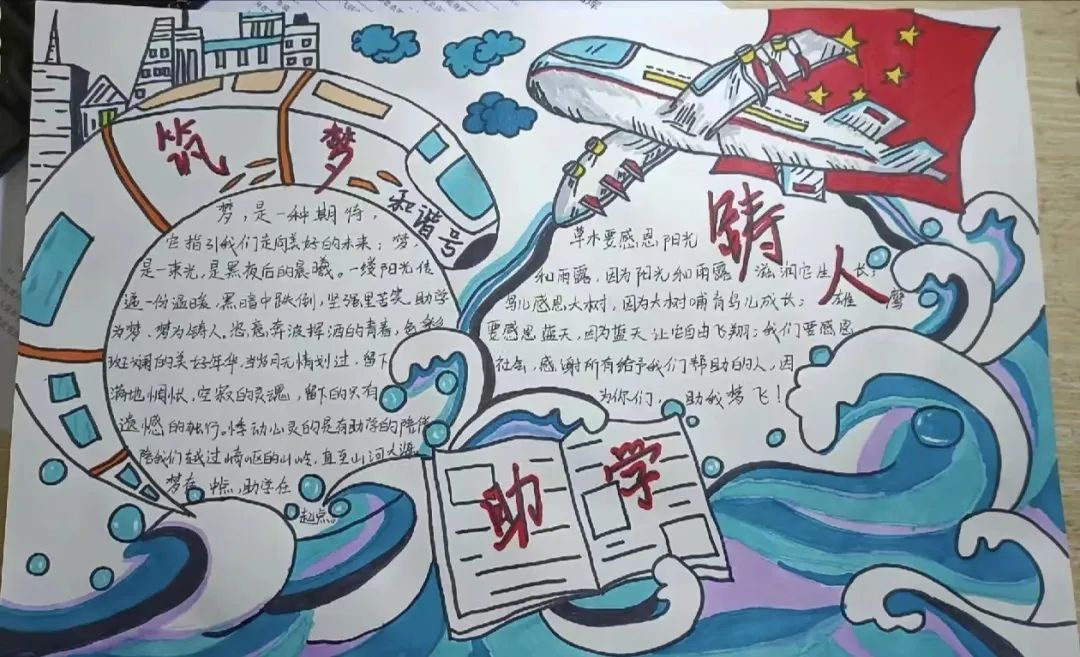 筑梦
和谐号
梦,是一种期待,
它指引我们走向美好的未来;梦,
是一束光,是黑夜后的晨曦。一缕阳光传
递一份温暖,黑暗中跌倒,坚强里苦笑,助学
为梦、梦为铸人。恣意奔波挥洒的青春,色彩
斑斓的美好年华,当岁月无情划过,留下
满地惆怅,空寂的灵魂,留下的只有
遗憾的独行。悸动心灵的是有助学的陪伴
陪我们越过崎岖的山岭,直至山河大海
梦在 终点,助学在
起点。
铸人
草木要感恩阳光
和雨露,因为阳光和雨露 滋润它生长;
鸟儿感恩大树,因为大树哺育鸟儿成长; 雄 鹰
要感恩蓝天,因为蓝天让它自由飞翔;我们要感恩
社会,感谢所有给予我们帮助的人,因
为你们, 助我梦飞!
助学